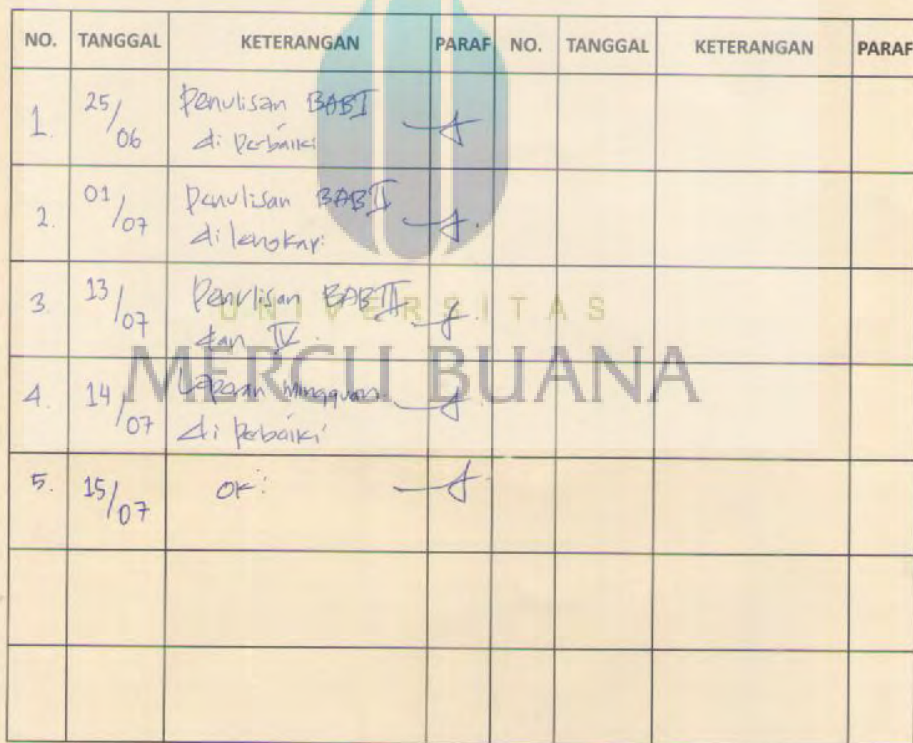 NO. TANGGAL KETERANGAN PARAF NO. TANGGAL KETERANGAN PARAF
1. 25/06 Penulisan BAB I
di Perbaiki
2. 01/07 Penulisan BAB II
di lengkapi
3. 13/07 Penulisan BAB III
dan IV.
4. 14/07 Laporan mingguan
di Perbaiki
5. 15/07 OK.
UNIVERSITAS
MERCU BUANA